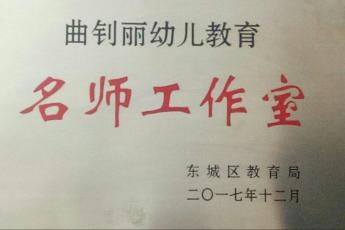 曲钊丽幼儿教育
名师工作室
东城区教育局
二〇一七年十二月